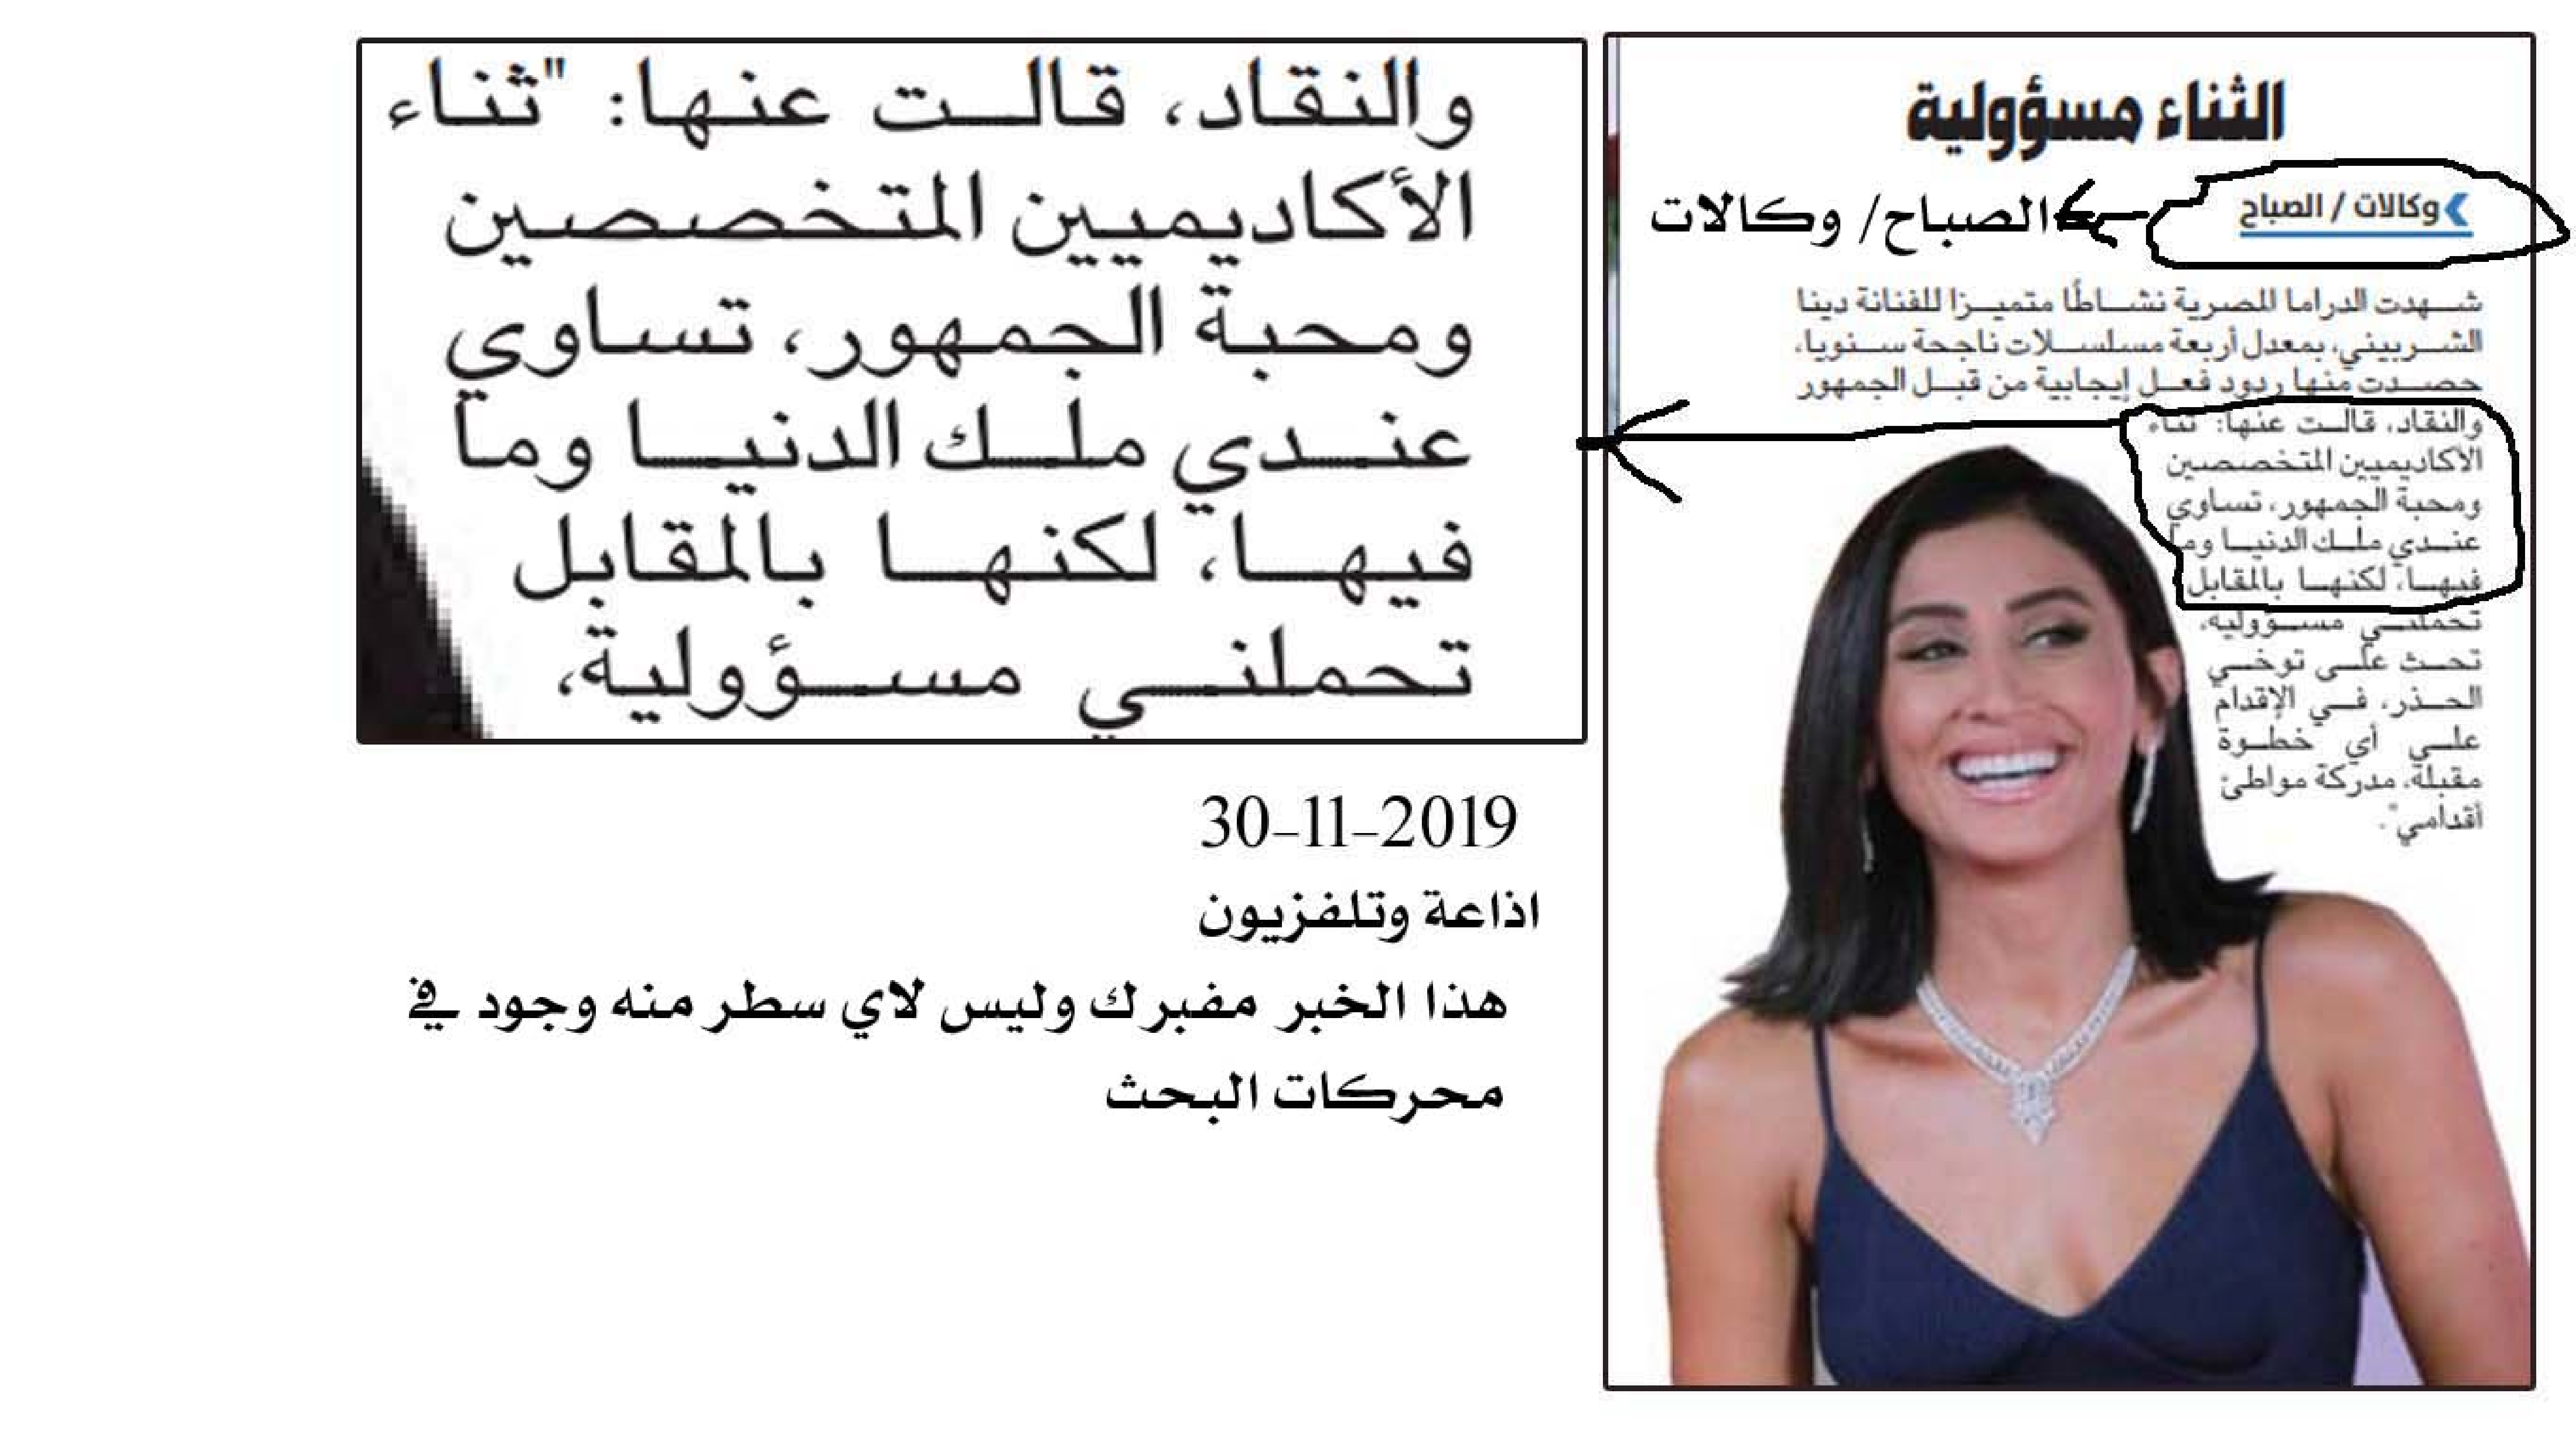 الثناء مسؤولية
وكالات / الصباح
الصباح/ وكالات
شـهدت الدراما المصرية نشـاطًا متميـزا للفنانة دينا
الشـربيني، بمعدل أربعة مسلسـلات ناجحة سـنويا،
حصـدت منها ردود فعـل إيجابية من قبـل الجمهور
والنقاد، قالـت عنها: "ثناء
الأكاديميين المتخصصين
ومحبة الجمهور، تساوي
عنـدي ملـك الدنيـا وما
فيهـا، لكنهـا بالمقابل
تحملنـي مسـؤولية،
تحـث علـى توخـي
الحـذر، فـي الإقدام
علـى أي خطـوة
مقبلة، مدركة مواطئ
أقدامي".
والنقاد، قالـت عنها: "ثناء
الأكاديميين المتخصصين
ومحبة الجمهور، تساوي
عنـدي ملـك الدنيـا وما
فيهـا، لكنهـا بالمقابل
تحملنـي مسـؤولية،
30-11-2019
اذاعة وتلفزيون
هذا الخبر مفبرك وليس لاي سطر منه وجود في
محركات البحث